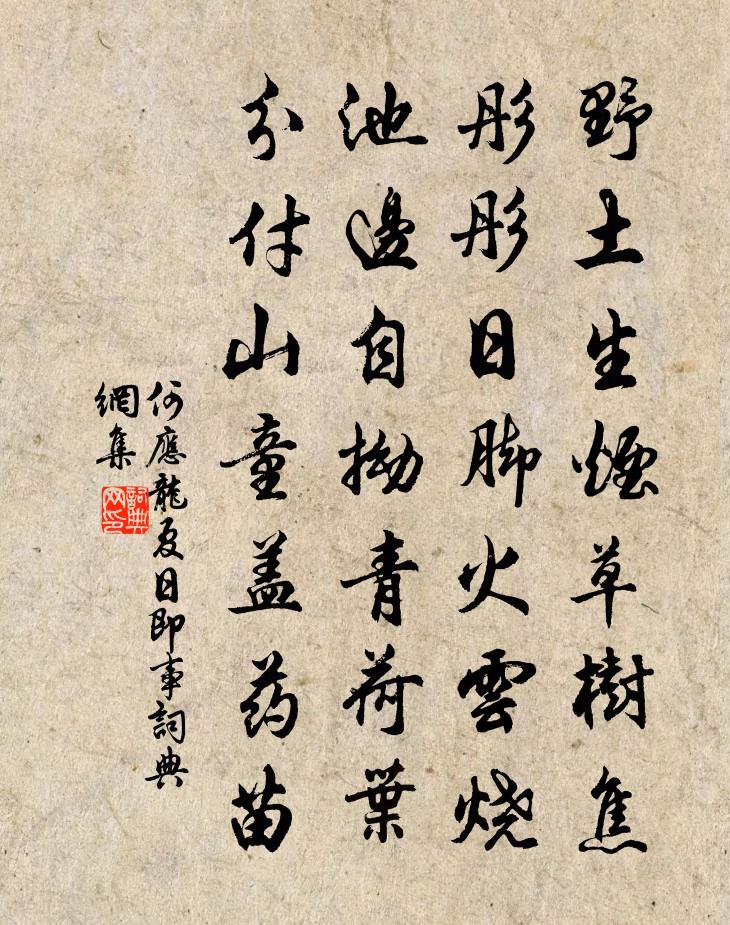 野土生煙草樹焦
彤彤日脚火雲烧
池邊自拗青荷葉
分付山童盖药苗
何應龍夏日即事詞典
網集
詞典
网印